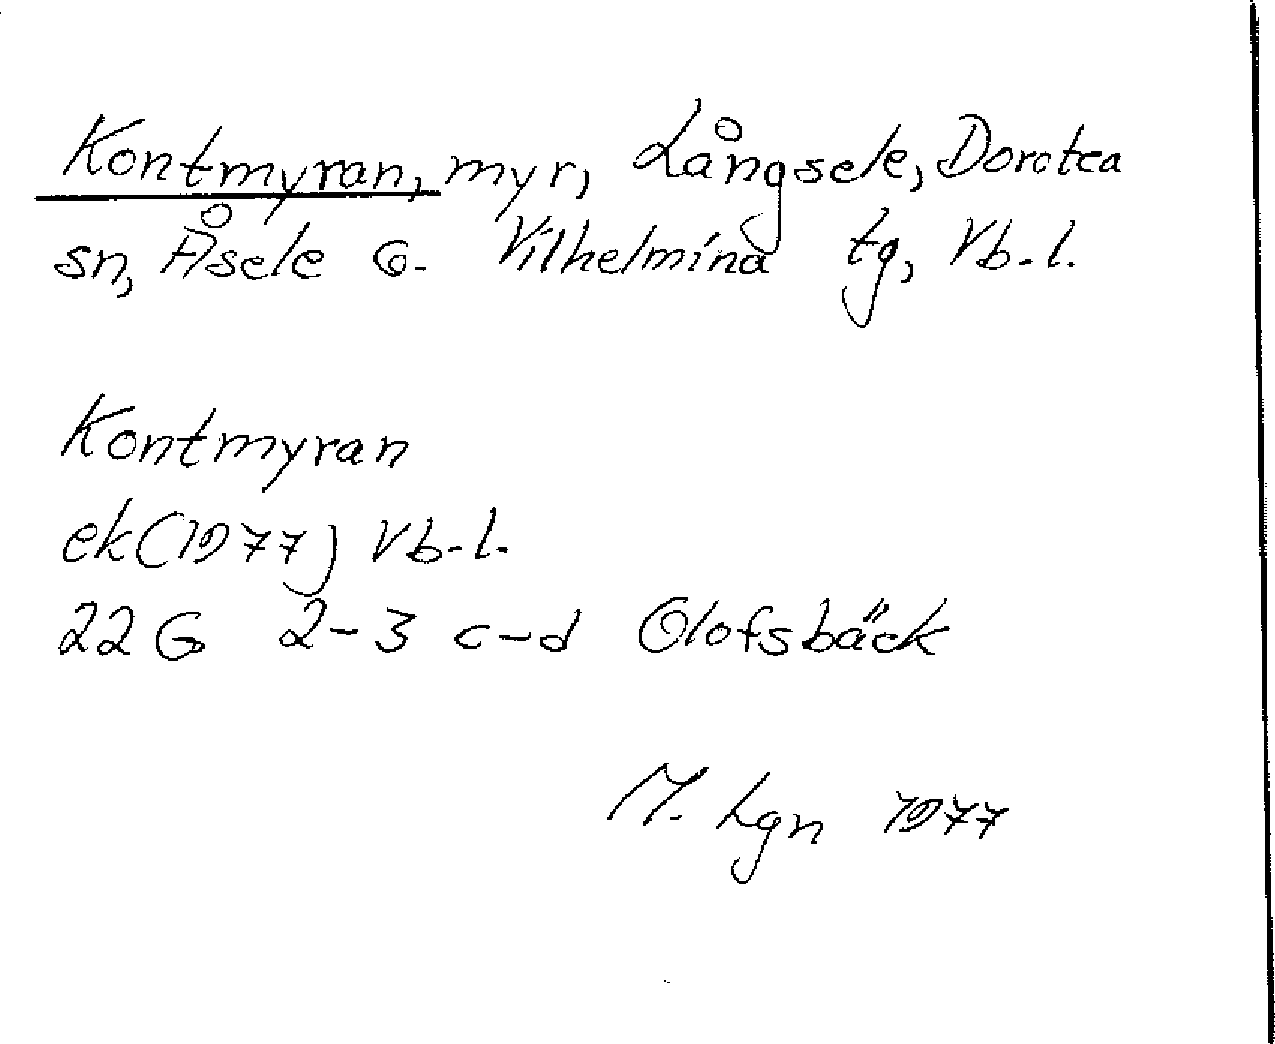 Kontmyran, myr, Långsele, Dorotea
sn, Åsele o. Vilhelmina tg, Vb.l.
Kontmyran
ek(1977) Vb.l.
22G 2-3 c-d Olofsbäck
M. Lgn 1977